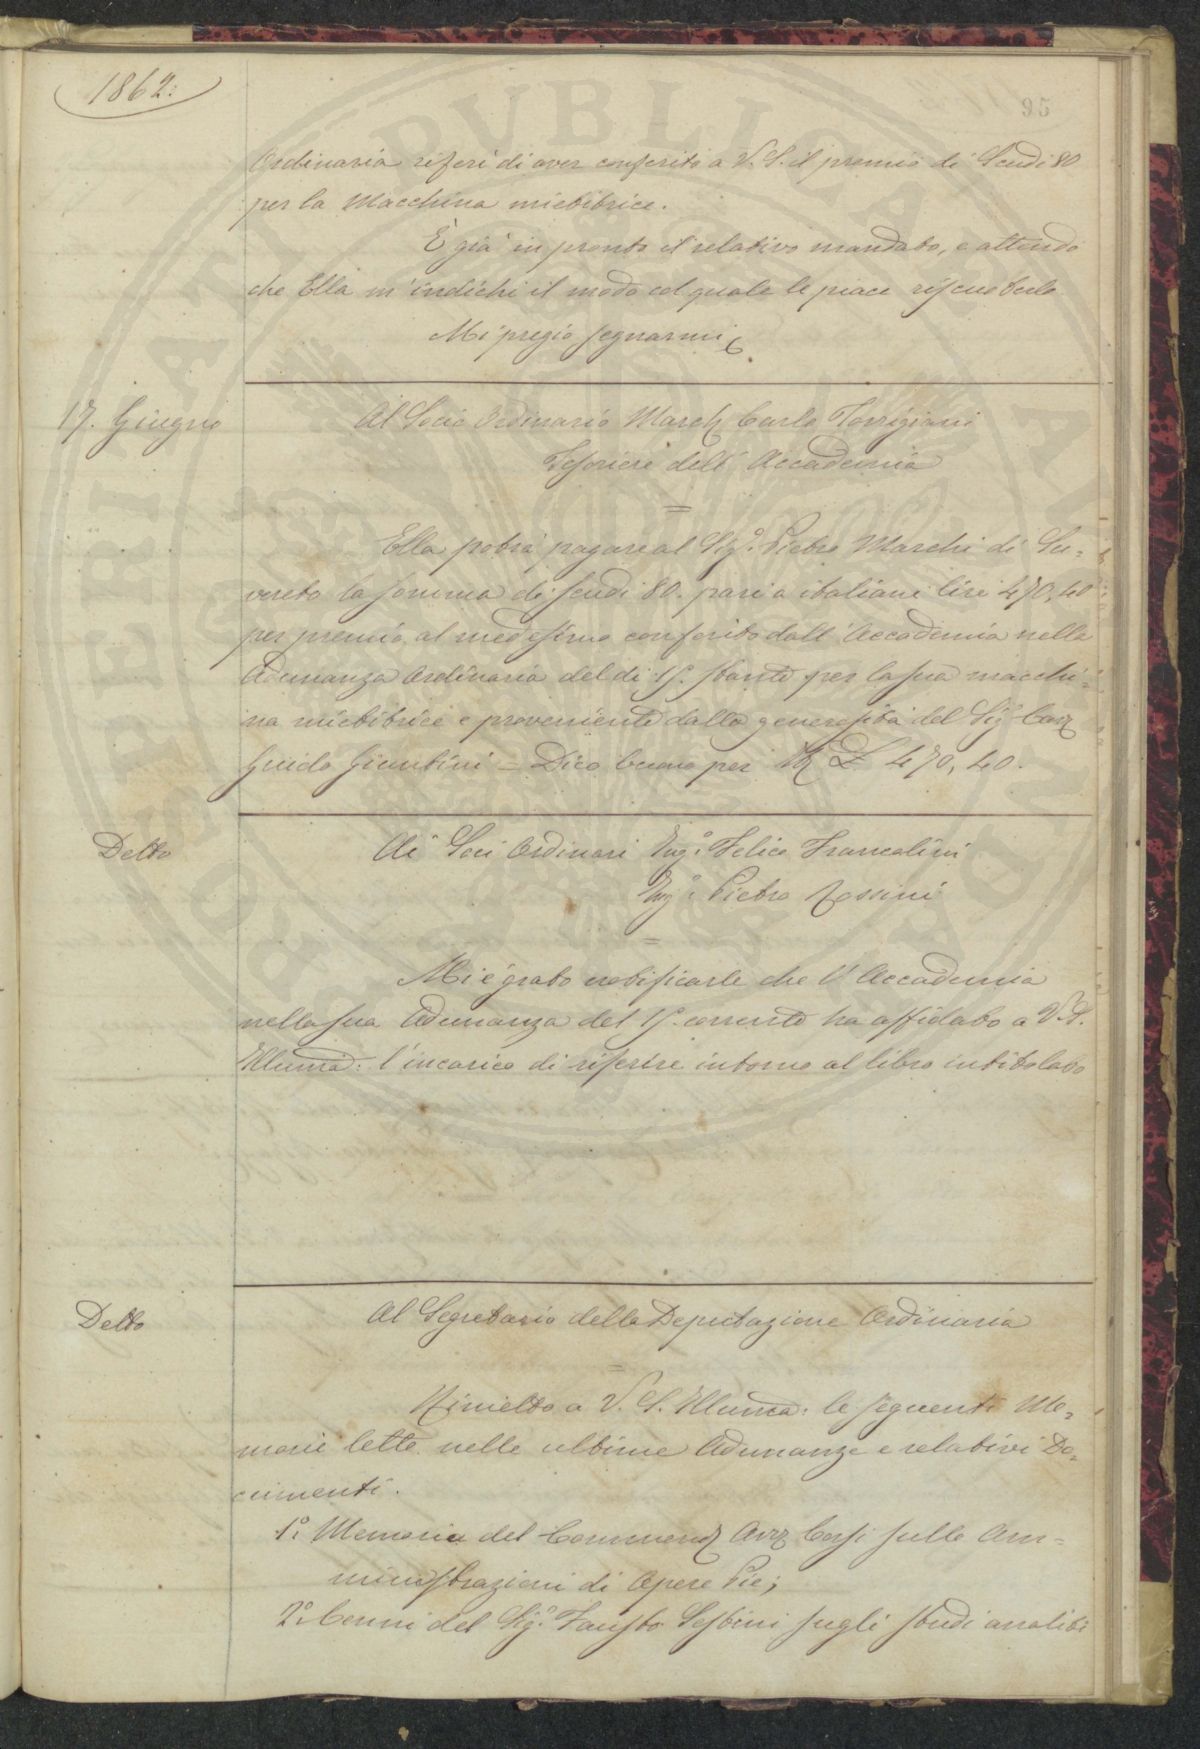 1862:
95
Ordinaria riferì di aver conferito a V. S. il premio di Scudi 80
per la Macchina mietitrice.
È già in pronto il relativo mandato, e attendo
che Ella m'indichi il modo col quale le piace riscuoterlo
Mi pregio segnarmi
17. Giugno
Al Socio Ordinario March Carlo Torrigiani
Tesoriere dell' Accademia
=
Ella potrà pagare al Sigr. Pietro Marchi di Su=
vereto la somma di scudi 80. pari a italiane lire 470,40
per premio al medesimo conferito dall' Accademia nella
Adunanza Ordinaria del di 15. stante per la sua macchi=
na mietitrice e proveniente dalla generosità del Sigr Cavr
Guido Giuntini = Dico buono per L 470,40.
Detto
Ai Soci Ordinari Ingo: Felice Francolini
Ingo: Pietro Rossini
=
Mi è grato notificarle che l' Accademia
nella sua Adunanza del 15. corrente ha affidato a V. S.
Illuma: l'incarico di riferire intorno al libro intitolato
Detto
Al Segretario della Deputazione Ordinaria
=
Rimetto a V. S. Illuma: le seguenti Me=
morie lette nelle ultime Adunanze e relativi Do=
cumenti.
1o: Memoria del Commend Avv Corsi sulle Am=
ministrazioni di Opere Pie;
2o: Cenni del Sigr. Fausto Sestini sugli studi analiti